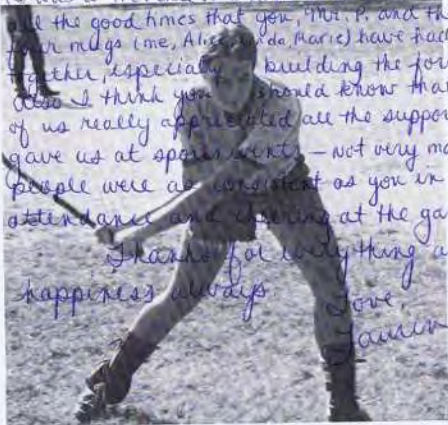 all the good times that you, Mr. P. and th
four mugs (me, Alice, Linda, Marie) have had
together, especially building the for
also I think you should know tha
of us really appreciated all the suppor
gave us at sports events – not very ma
people were as consistent as you in
attendance and cheering at the ga
Thanks for everything a
happiness always
Love,